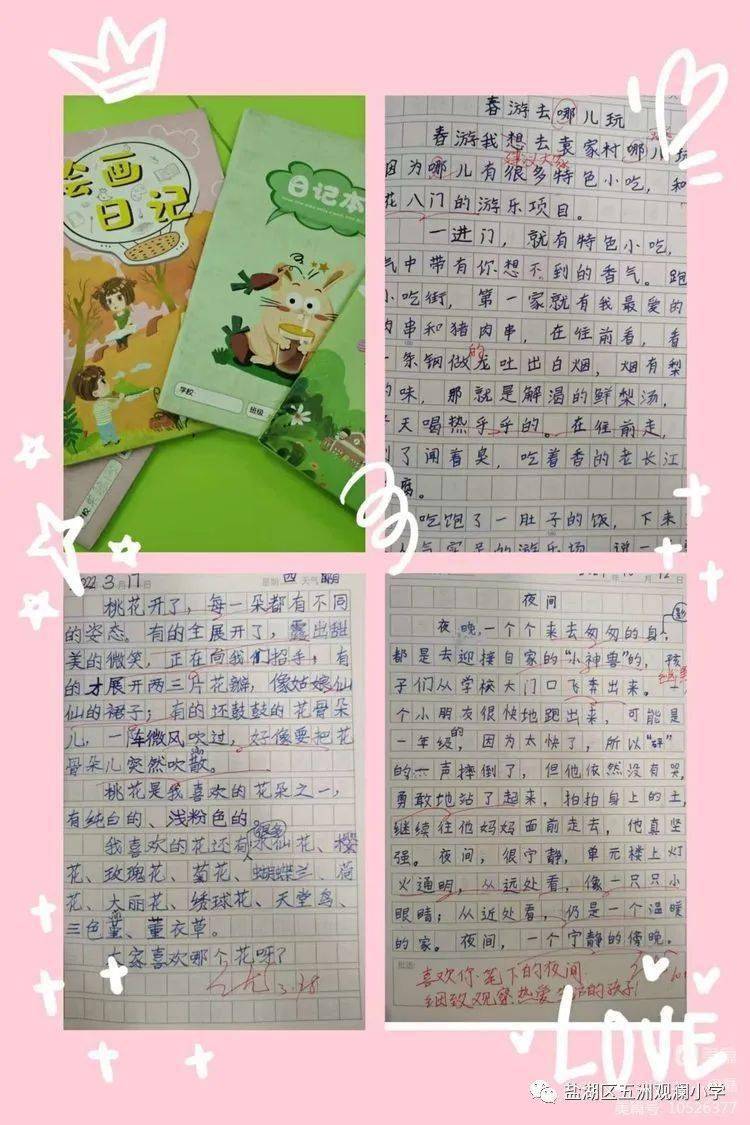 绘画
日记
日记本
学校
班级
春游去哪儿玩
春游我想去袁家村哪儿玩
建议大家
因为哪儿有很多特色小吃，和
花八门的游乐项目。
一进门，就有特色小吃，
气中带有你想不到的香气。跑
小吃街，第一家就有我最爱的
肉串和猪肉串，在往前看，看
一条钢做的龙吐出白烟，烟有梨
的味，那就是解渴的鲜梨汤，
天喝热乎乎的。在往前走，
到了闻着臭，吃着香的老长江
腐。
吃饱了一肚子的饭，下来
2022 3月17日 星期 四 天气 晴
桃花开了，每一朵都有不同
的姿态。有的全展开了，露出甜
美的微笑，正在向我们招手；有
的才展开两三片花瓣，像姑娘仙
仙的裙子；有的还鼓鼓的花骨朵
儿，一阵微风吹过，好像要把花
骨朵儿突然吹散。
桃花是我喜欢的花朵之一，
有纯白的、浅粉色的。
我喜欢的花还有水仙花、樱
花、玫瑰花、菊花、蝴蝶兰、荷
花、大丽花、绣球花、天堂鸟、
三色堇、薰衣草。
大家喜欢哪个花呀？
3.28
年 月12日
夜间
夜晚，一个个来去匆匆的身影
都是去迎接自家的“小神兽”的，孩
子们从学校大门口飞奔出来。一
个小朋友很快地跑出来，可能是
一年级的，因为太快了，所以“砰”
的一声摔倒了，但他依然没有哭，
勇敢地站了起来，拍拍身上的土，
继续往他妈妈面前走去，他真坚
强。夜间，很宁静，单元楼上灯
火通明，从远处看，像一只只小
眼睛；从近处看，仍是一个温暖
的家。夜间，一个宁静的傍晚。
喜欢你笔下的夜间
细致观察热爱生活的孩子！
LOVE
盐湖区五洲观澜小学
美篇号: 10526377